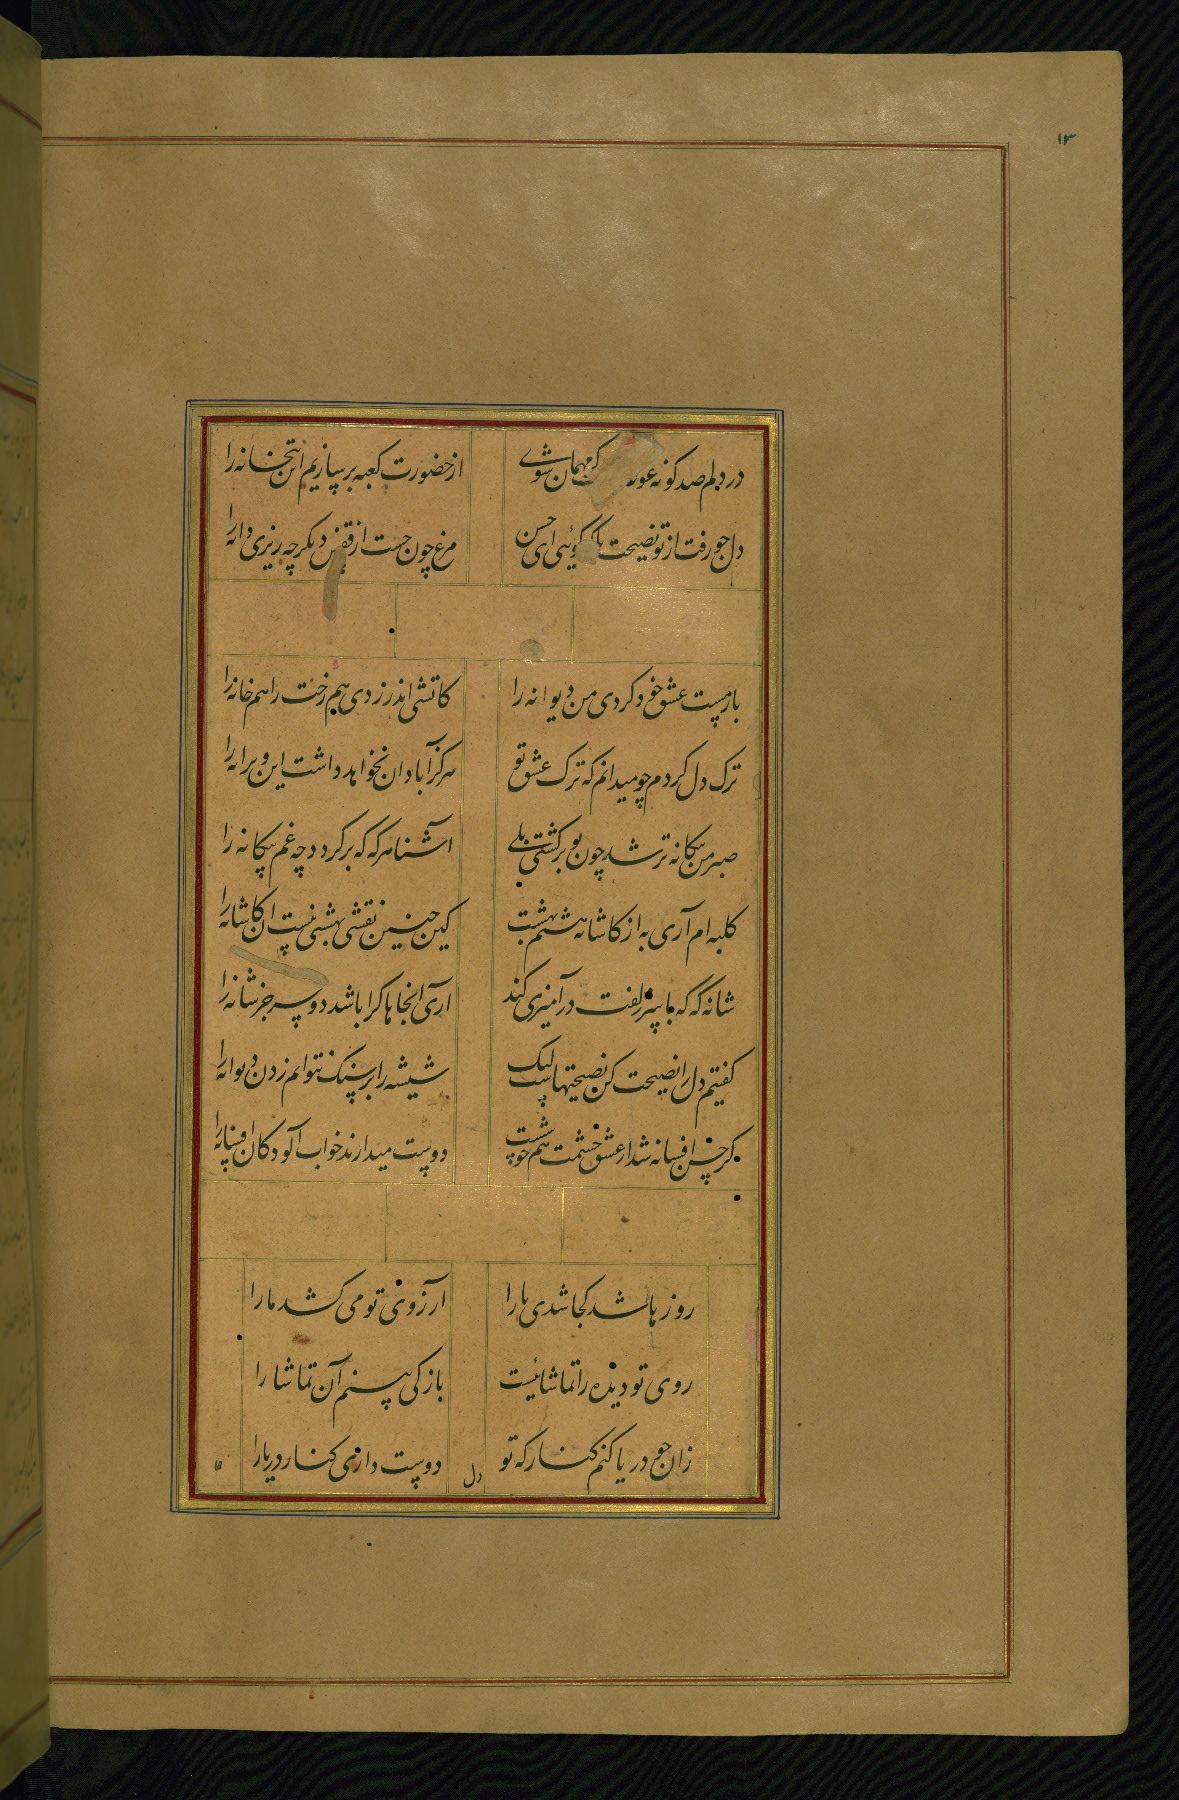 ۱۳
در دلم صد گونه مهمان شوی
از حضورت کعبه برسازیم این بتخانه را
دل چو رفت از تو نصیحت گوئی ای حسن
مرغ چون جست از قفس دیگر چه ریزی دانه را
باز مست عشق خود کردی من دیوانه را
کاتشی اندر زدی هم رخت را هم خانه را
ترک دل کردم چو میدانم که ترک عشق تو
هرگز آبادان نخواهد داشت این ویرانه را
صبر من بیگانه تر شد چون تو برگشتی بلی
آشنا هرگه که برگردد چه غم بیگانه را
کلبه ام آری به از کاشانه هشتم بهشت
کین چنین نقشی بهشتی نیست آن کاشانه را
شانه گه گه با سر زلفت درآمیزی کند
آری آنجاها کرا باشد دو سر جز شانه را
گفتیم دل را نصیحت کن نصیحتهاست لیک
شیشه را بر سنگ نتوانم زدن دیوانه را
گر حسن افسانه شد از عشق چشمت هم خوشست
دوست میدارند خواب آلودگان افسانه را
روزها شد کجا شدی یارا
آرزوی تو می کشد ما را
روی تو دیده را تماشائیست
باز کی بینم آن تماشا را
زان چو دریا کنم کنار که تو
دوست داری کنار دریا را
دل